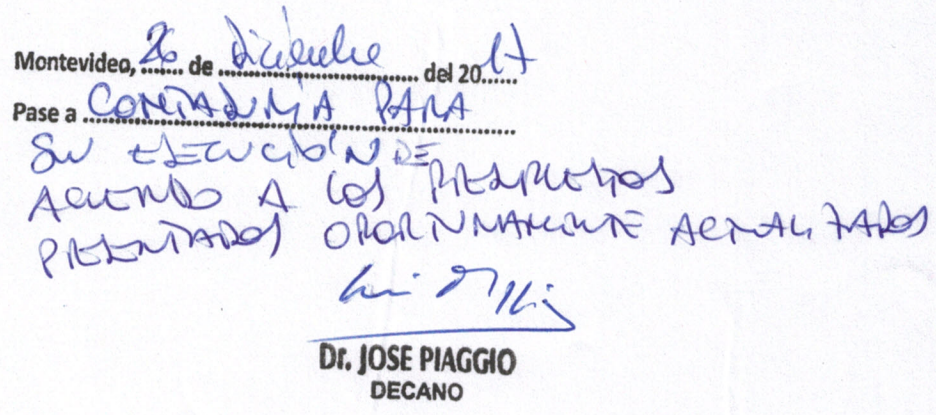 Montevideo, 26 de diciembre del 2017
Pase a CONTADURÍA PARA
SU EJECUCIÓN DE
ACUERDO A LOS PRESUPUESTOS
PRESENTADOS OPORTUNAMENTE ACTUALIZADOS
Dr. JOSE PIAGGIO
DECANO